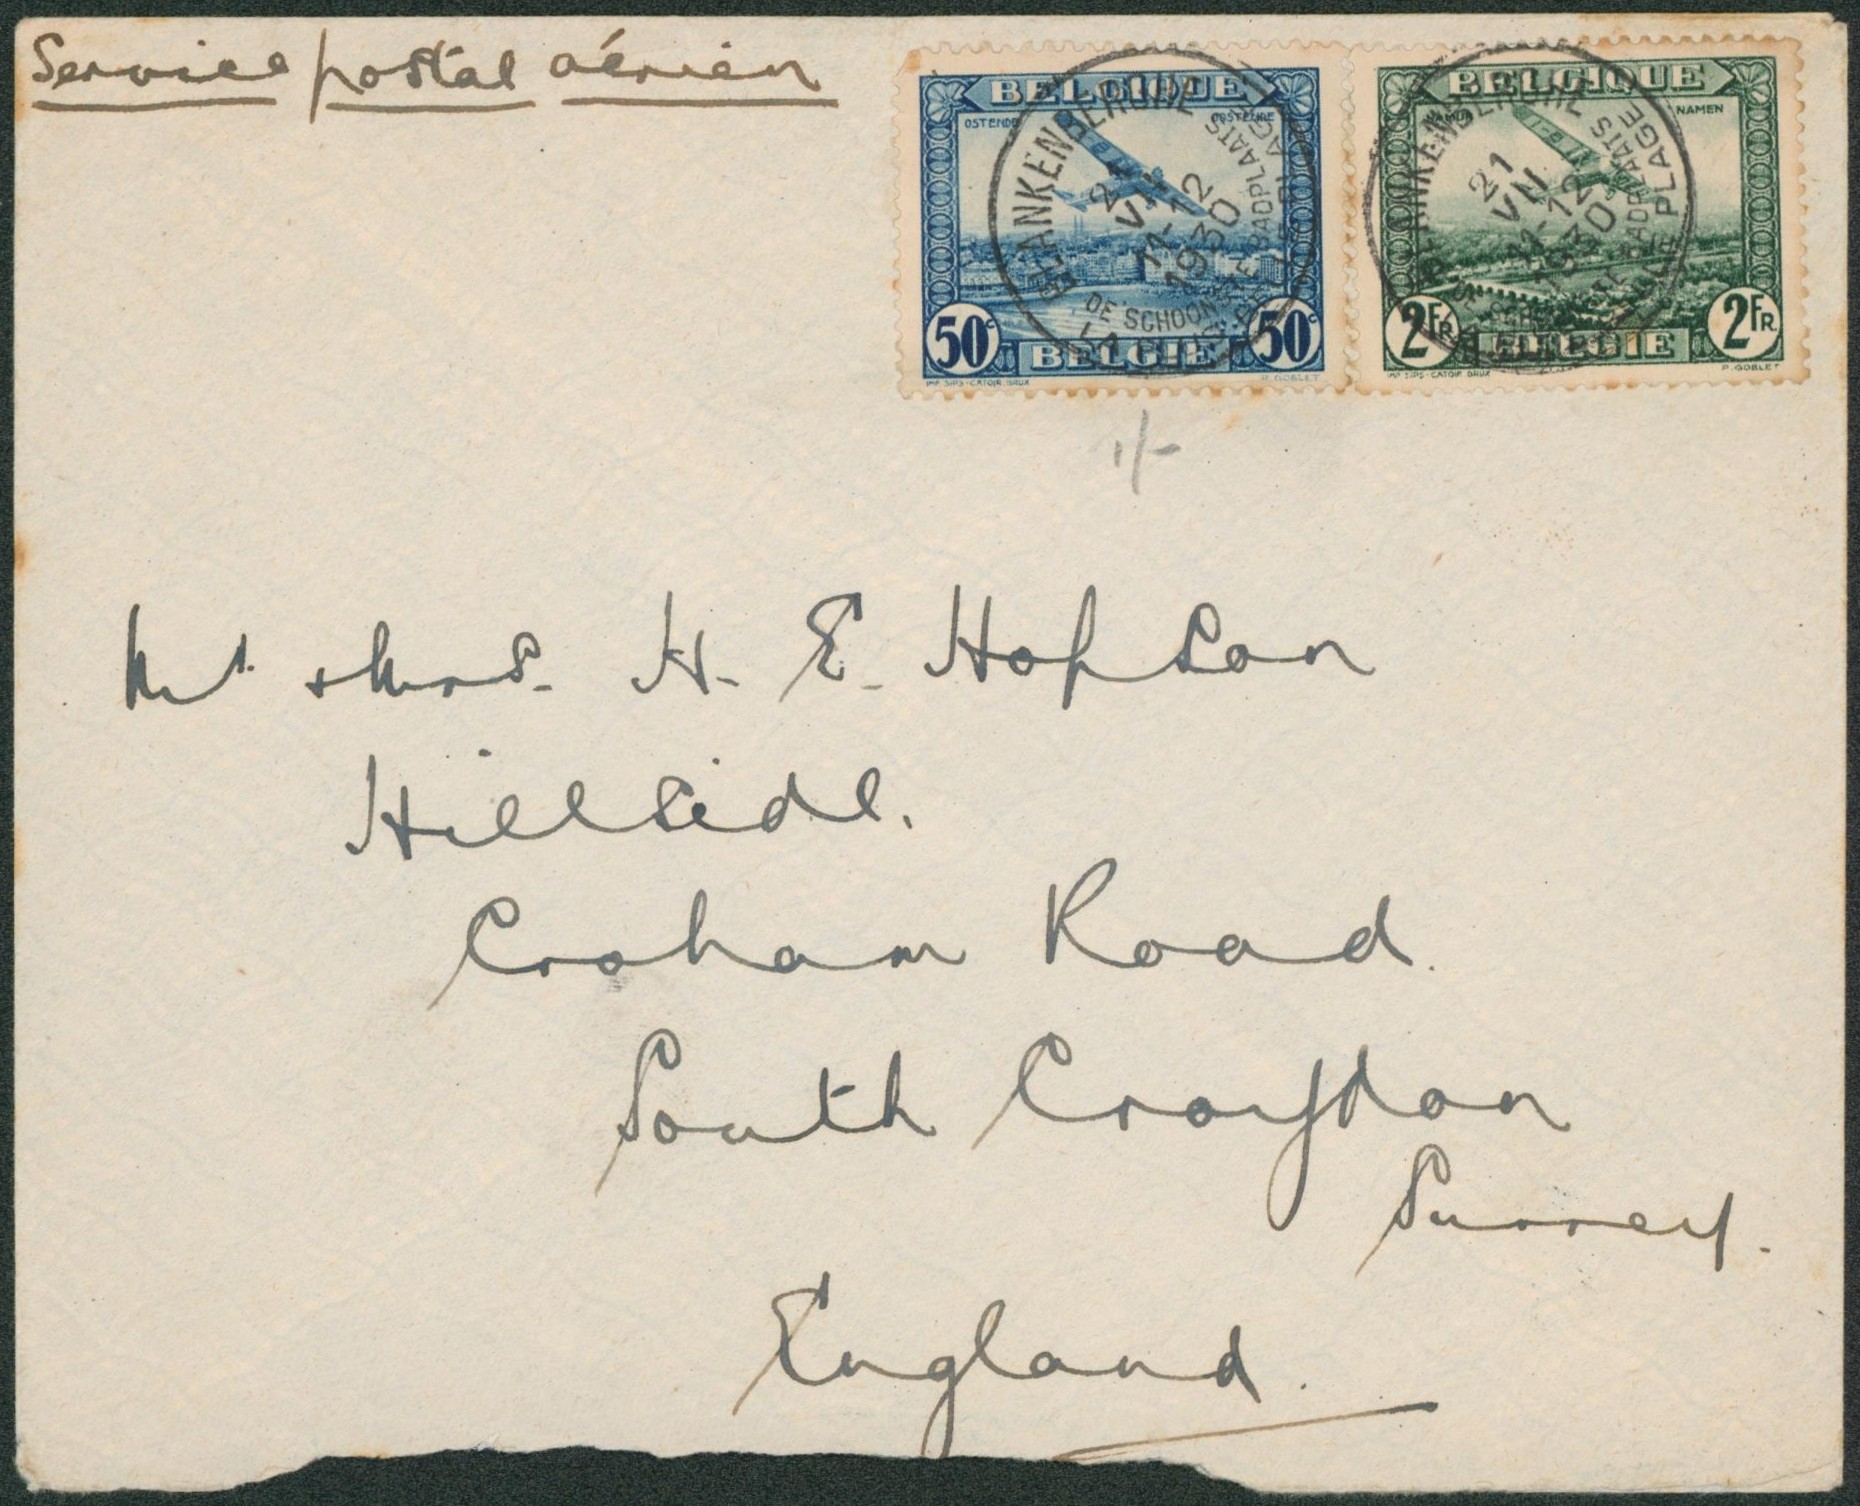 Service postal aérien
BELGIQUE
OSTENDE OOSTENDE
50c 50c
BELGIE
IMP. SIPS-CATOIR. BRUX P. GOBLET
BELGIQUE
NAMUR NAMEN
2FR 2FR
BELGIE
IMP. SIPS-CATOIR. BRUX P. GOBLET
BLANKENBERGHE
21
VII
11-12
1930
DE SCHOONSTE BADPLAATS
LA PLUS BELLE PLAGE
BLANKENBERGHE
21
VII
11-12
1930
DE SCHOONSTE BADPLAATS
LA PLUS BELLE PLAGE
1/-
Mr. + Mrs. H. E. Hopson
Hillside.
Croham Road.
South Croydon
Surrey.
England.